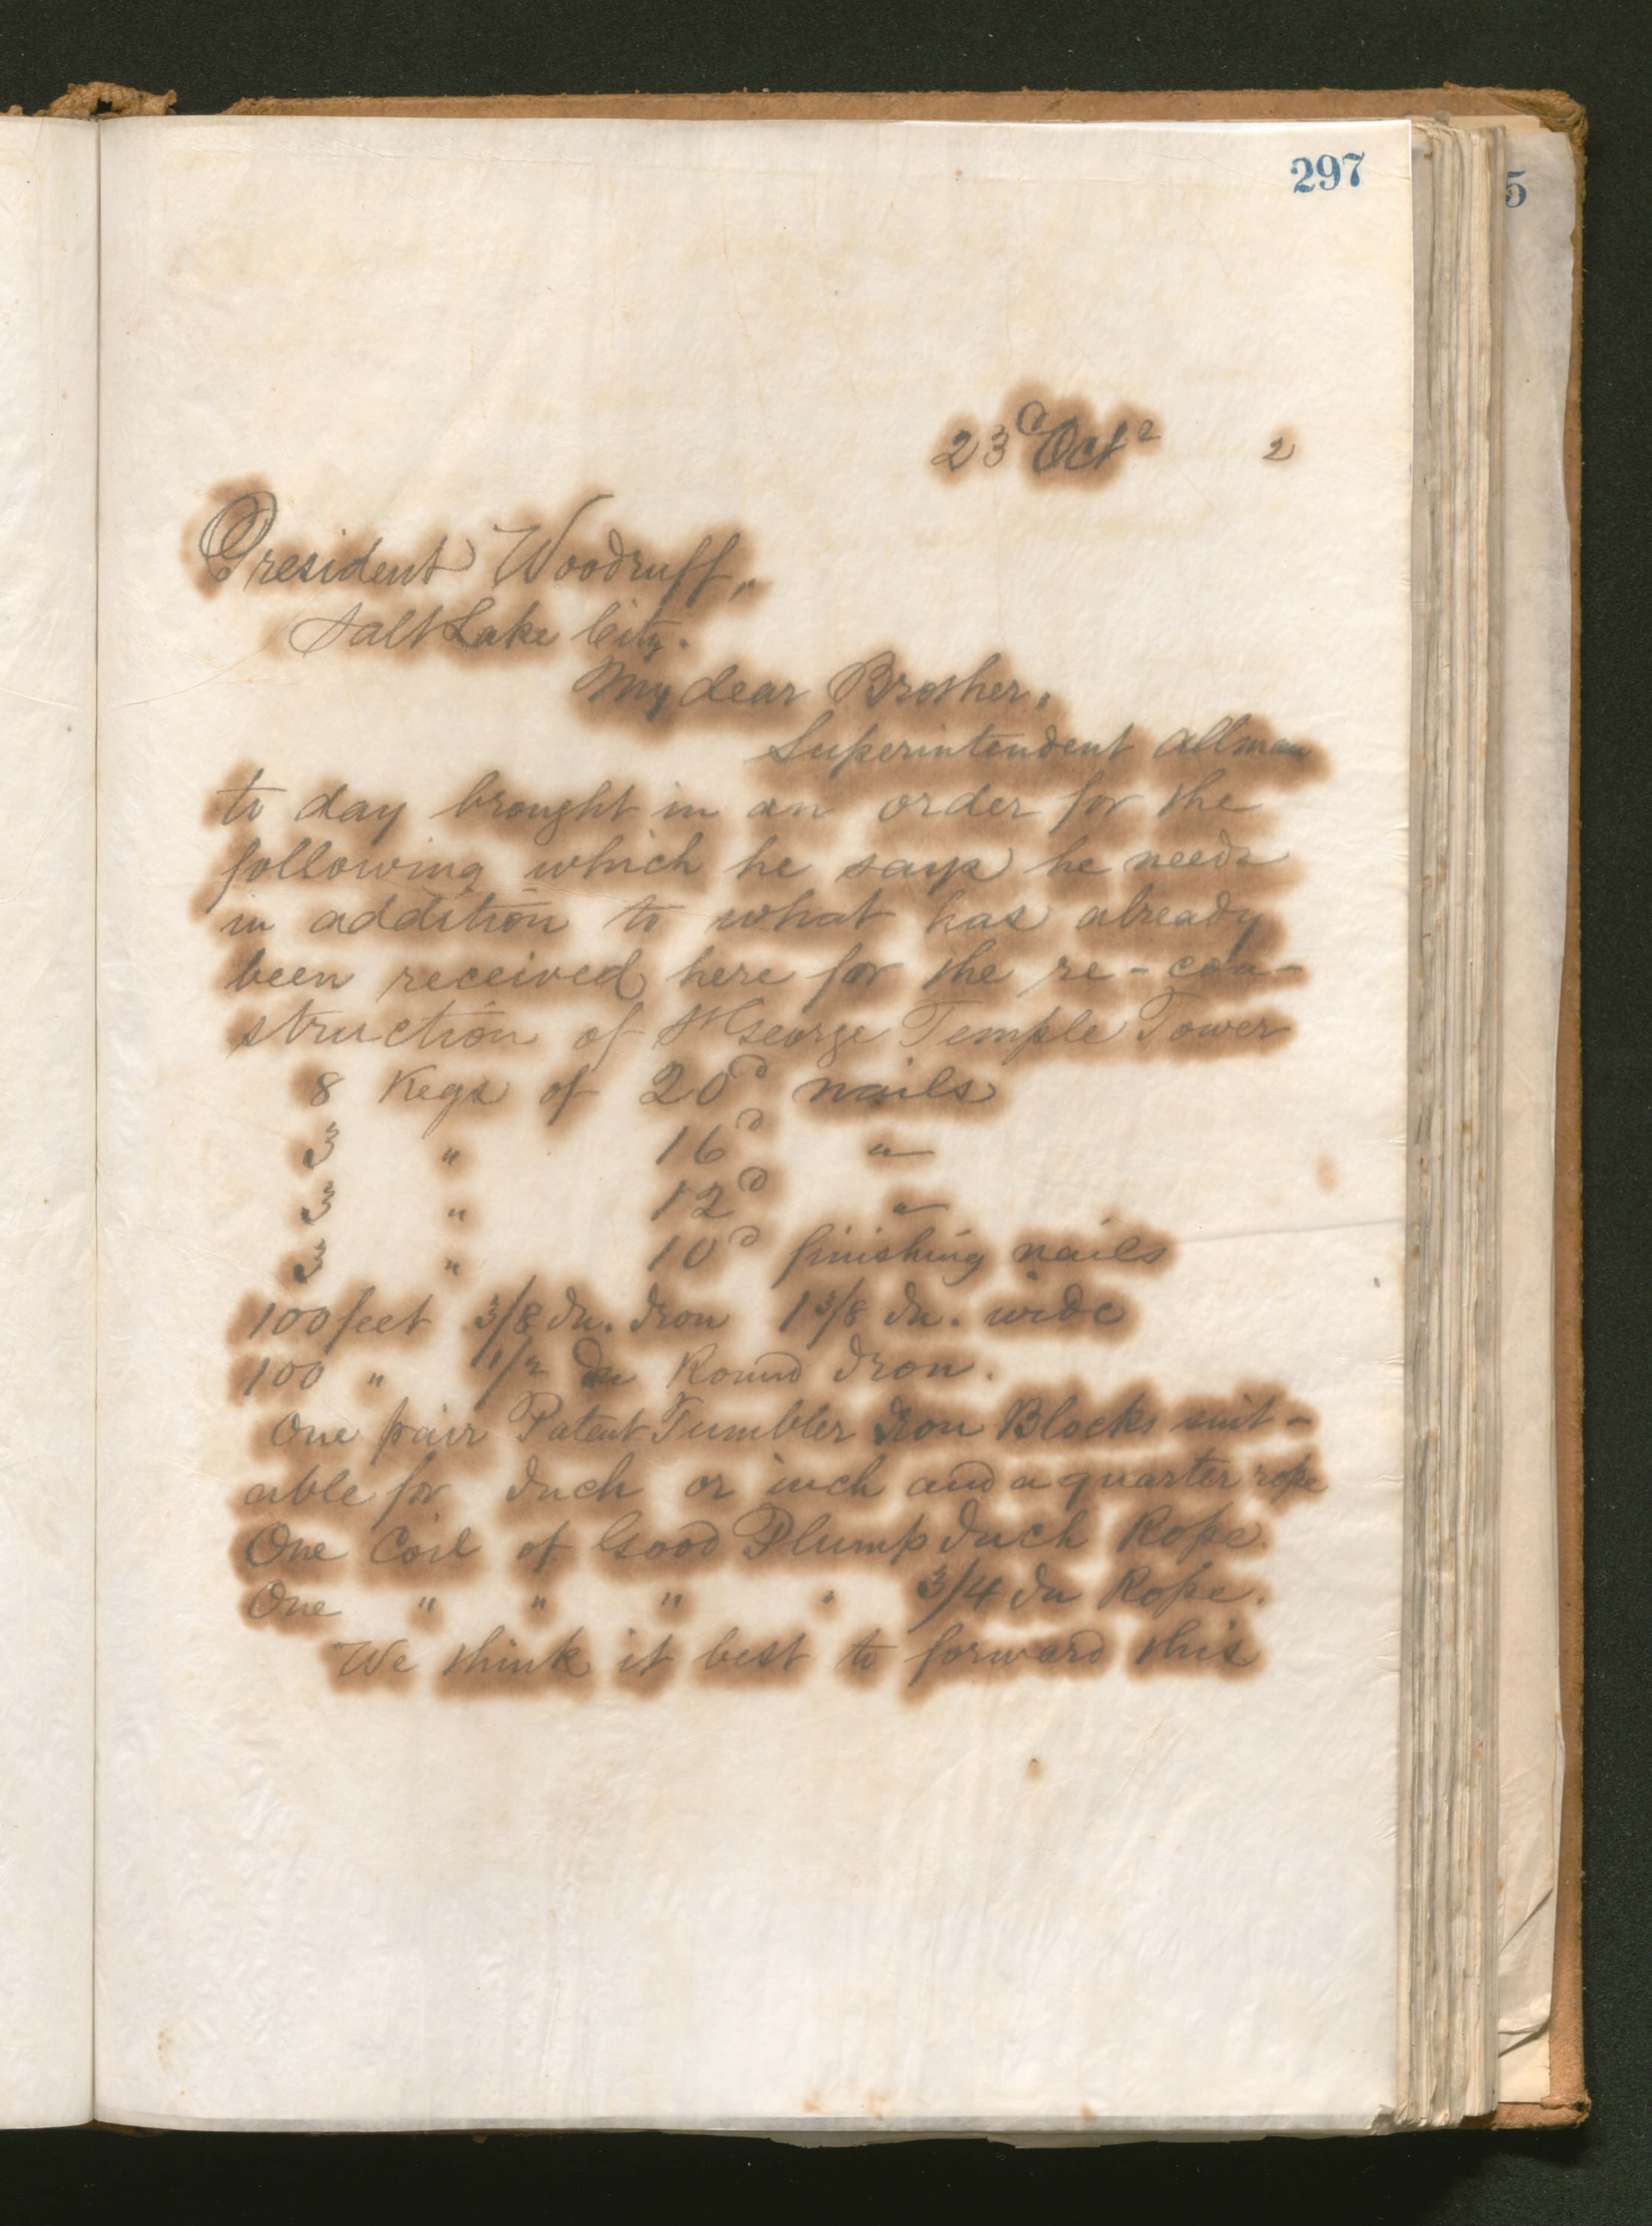 297
5
23d Octr 2
President Woodruff,
Salt Lake City.
My dear Brother,
Superintendent Allman
to day brought in an order for the
following which he says he needs
in addition to what has already
been received here for the re-con-
struction of St George Temple Tower
8 Kegs of 20d nails
3 " 16d "
3 " 12d "
3 " 10d finishing nails
100 feet 3/8 In. Iron 1 3/8 In. wide
100 " 1/2 In Round Iron.
One pair Patent Tumbler Iron Blocks suit-
able for Inch or inch and a quarter rope
One Coil of Good Plump Inch Rope.
One " " " " 3/4 In Rope.
We think it best to forward this